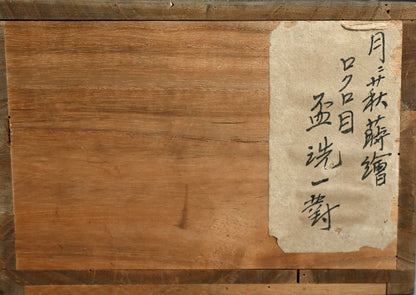 月ニ萩蒔繪
ロクロ目
盃洗一對